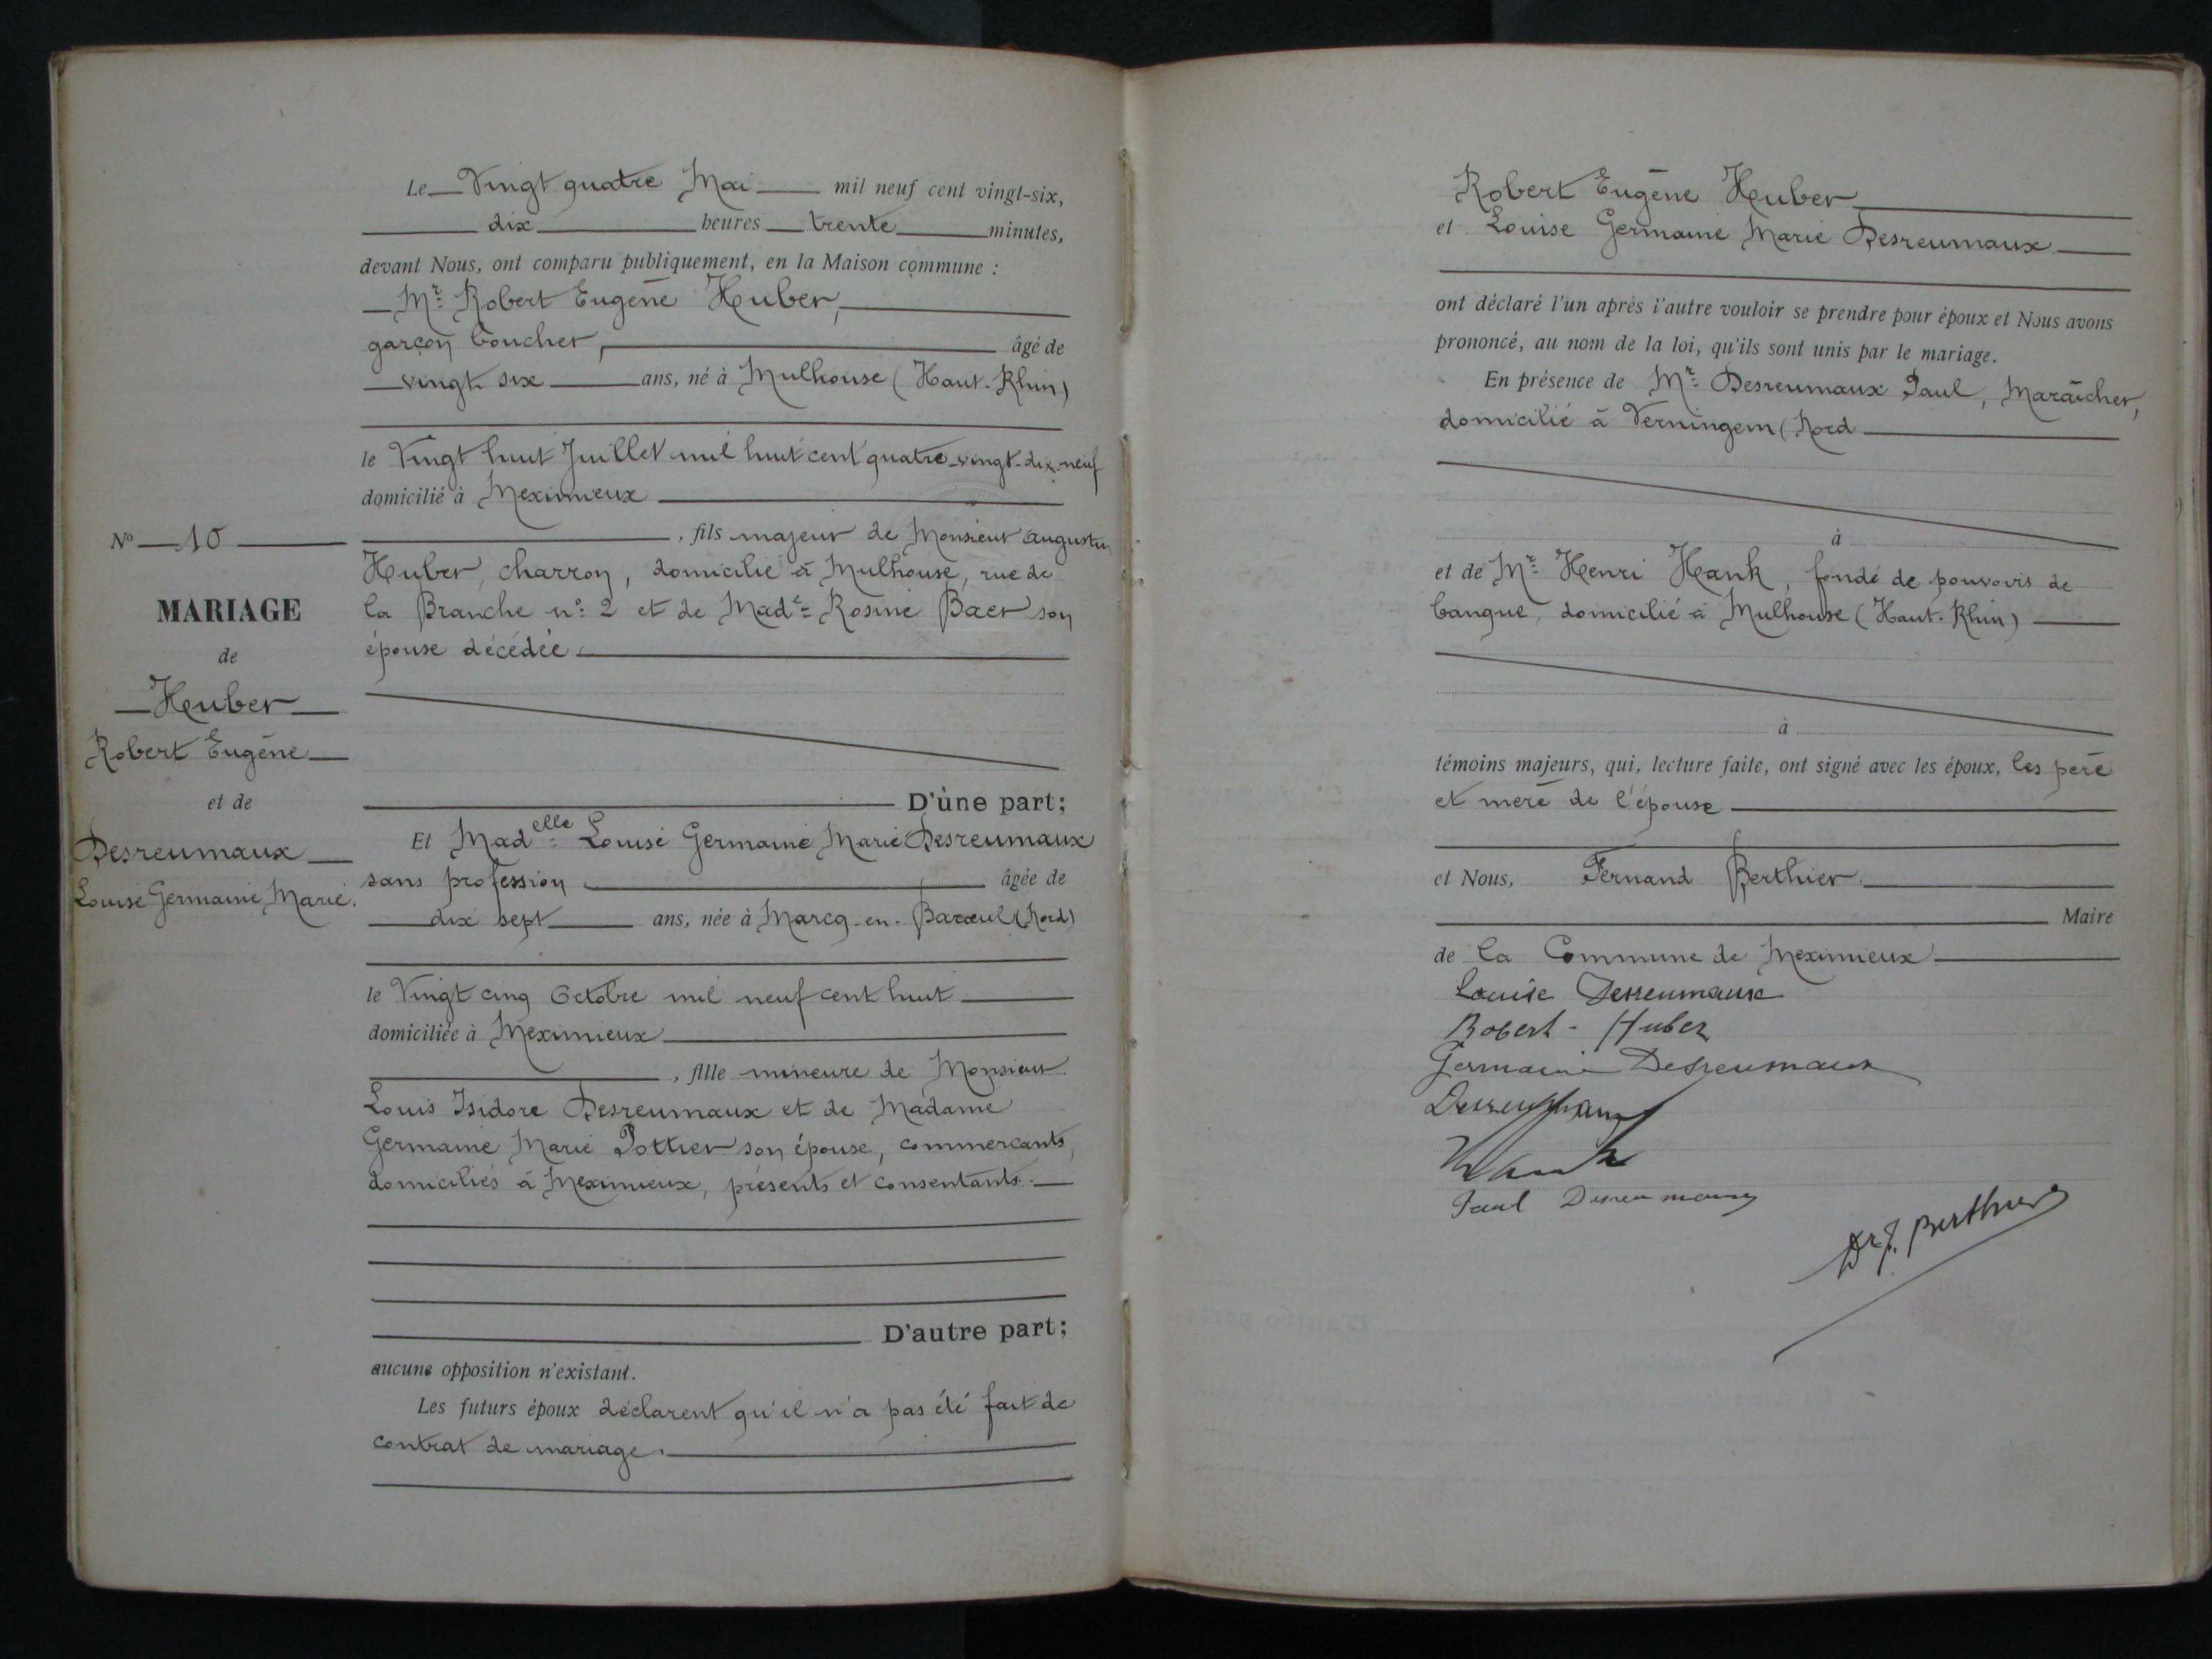 Le Vingt quatre Mai mil neuf cent vingt-six,
dix heures trente minutes,
devant Nous, ont comparu publiquement, en la Maison commune :
Mr Robert Eugène Huber,
garçon boucher, âgé de
vingt six ans, né à Mulhouse (Haut-Rhin)
le Vingt huit Juillet mil huit cent quatre-vingt-dix-neuf
domicilié à Meximieux
, fils majeur de Monsieur Augustin
Huber, charron, domicilié à Mulhouse, rue de
la Branche n° 2 et de Made Rosine Baer son
épouse décédée
D'une part;
Et Madelle Louise Germaine Marie Desreumaux
sans profession âgée de
dix sept ans, née à Marcq-en-Barœul (Nord)
le Vingt cinq Octobre mil neuf cent huit
domiciliée à Meximieux
, fille mineure de Monsieur
Louis Isidore Desreumaux et de Madame
Germaine Marie Pottier son épouse, commerçants,
domiciliés à Meximieux, présents et consentants.
D'autre part;
aucune opposition n'existant.
Les futurs époux déclarent qu'il n'a pas été fait de
contrat de mariage.
N° 10
MARIAGE
de
Huber
Robert Eugène
et de
Desreumaux
Louise Germaine Marie.
Robert Eugène Huber
et Louise Germaine Marie Desreumaux
ont déclaré l'un après l'autre vouloir se prendre pour époux et Nous avons
prononcé, au nom de la loi, qu'ils sont unis par le mariage.
En présence de Mr Desreumaux Paul, Maraîcher,
domicilié à Verningem (Nord
à
et de Mr Henri Hank, fondé de pouvoirs de
banque, domicilié à Mulhouse (Haut-Rhin)
à
témoins majeurs, qui, lecture faite, ont signé avec les époux, les père
et mère de l'épouse
et Nous, Fernand Berthier
Maire
de la Commune de Meximieux
Louise Desreumaux
Robert - Huber
Germaine Desreumaux
Desreumaux
Hank
Paul Desreumaux
Dr F. Berthier